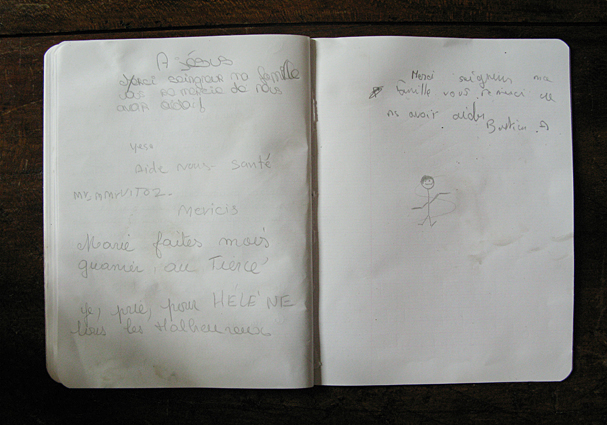 A JÉSUS
Merci seigneur ma famille
vous remercie de nous
avoir aidé
Aide nous santé
Mericis
Marie faites mois
guanier, au Tiercé
Je, prie, pour HELE'NE
tous les Malheureux
Merci seigneur ma
famille vous remerci de
ns avoir aider